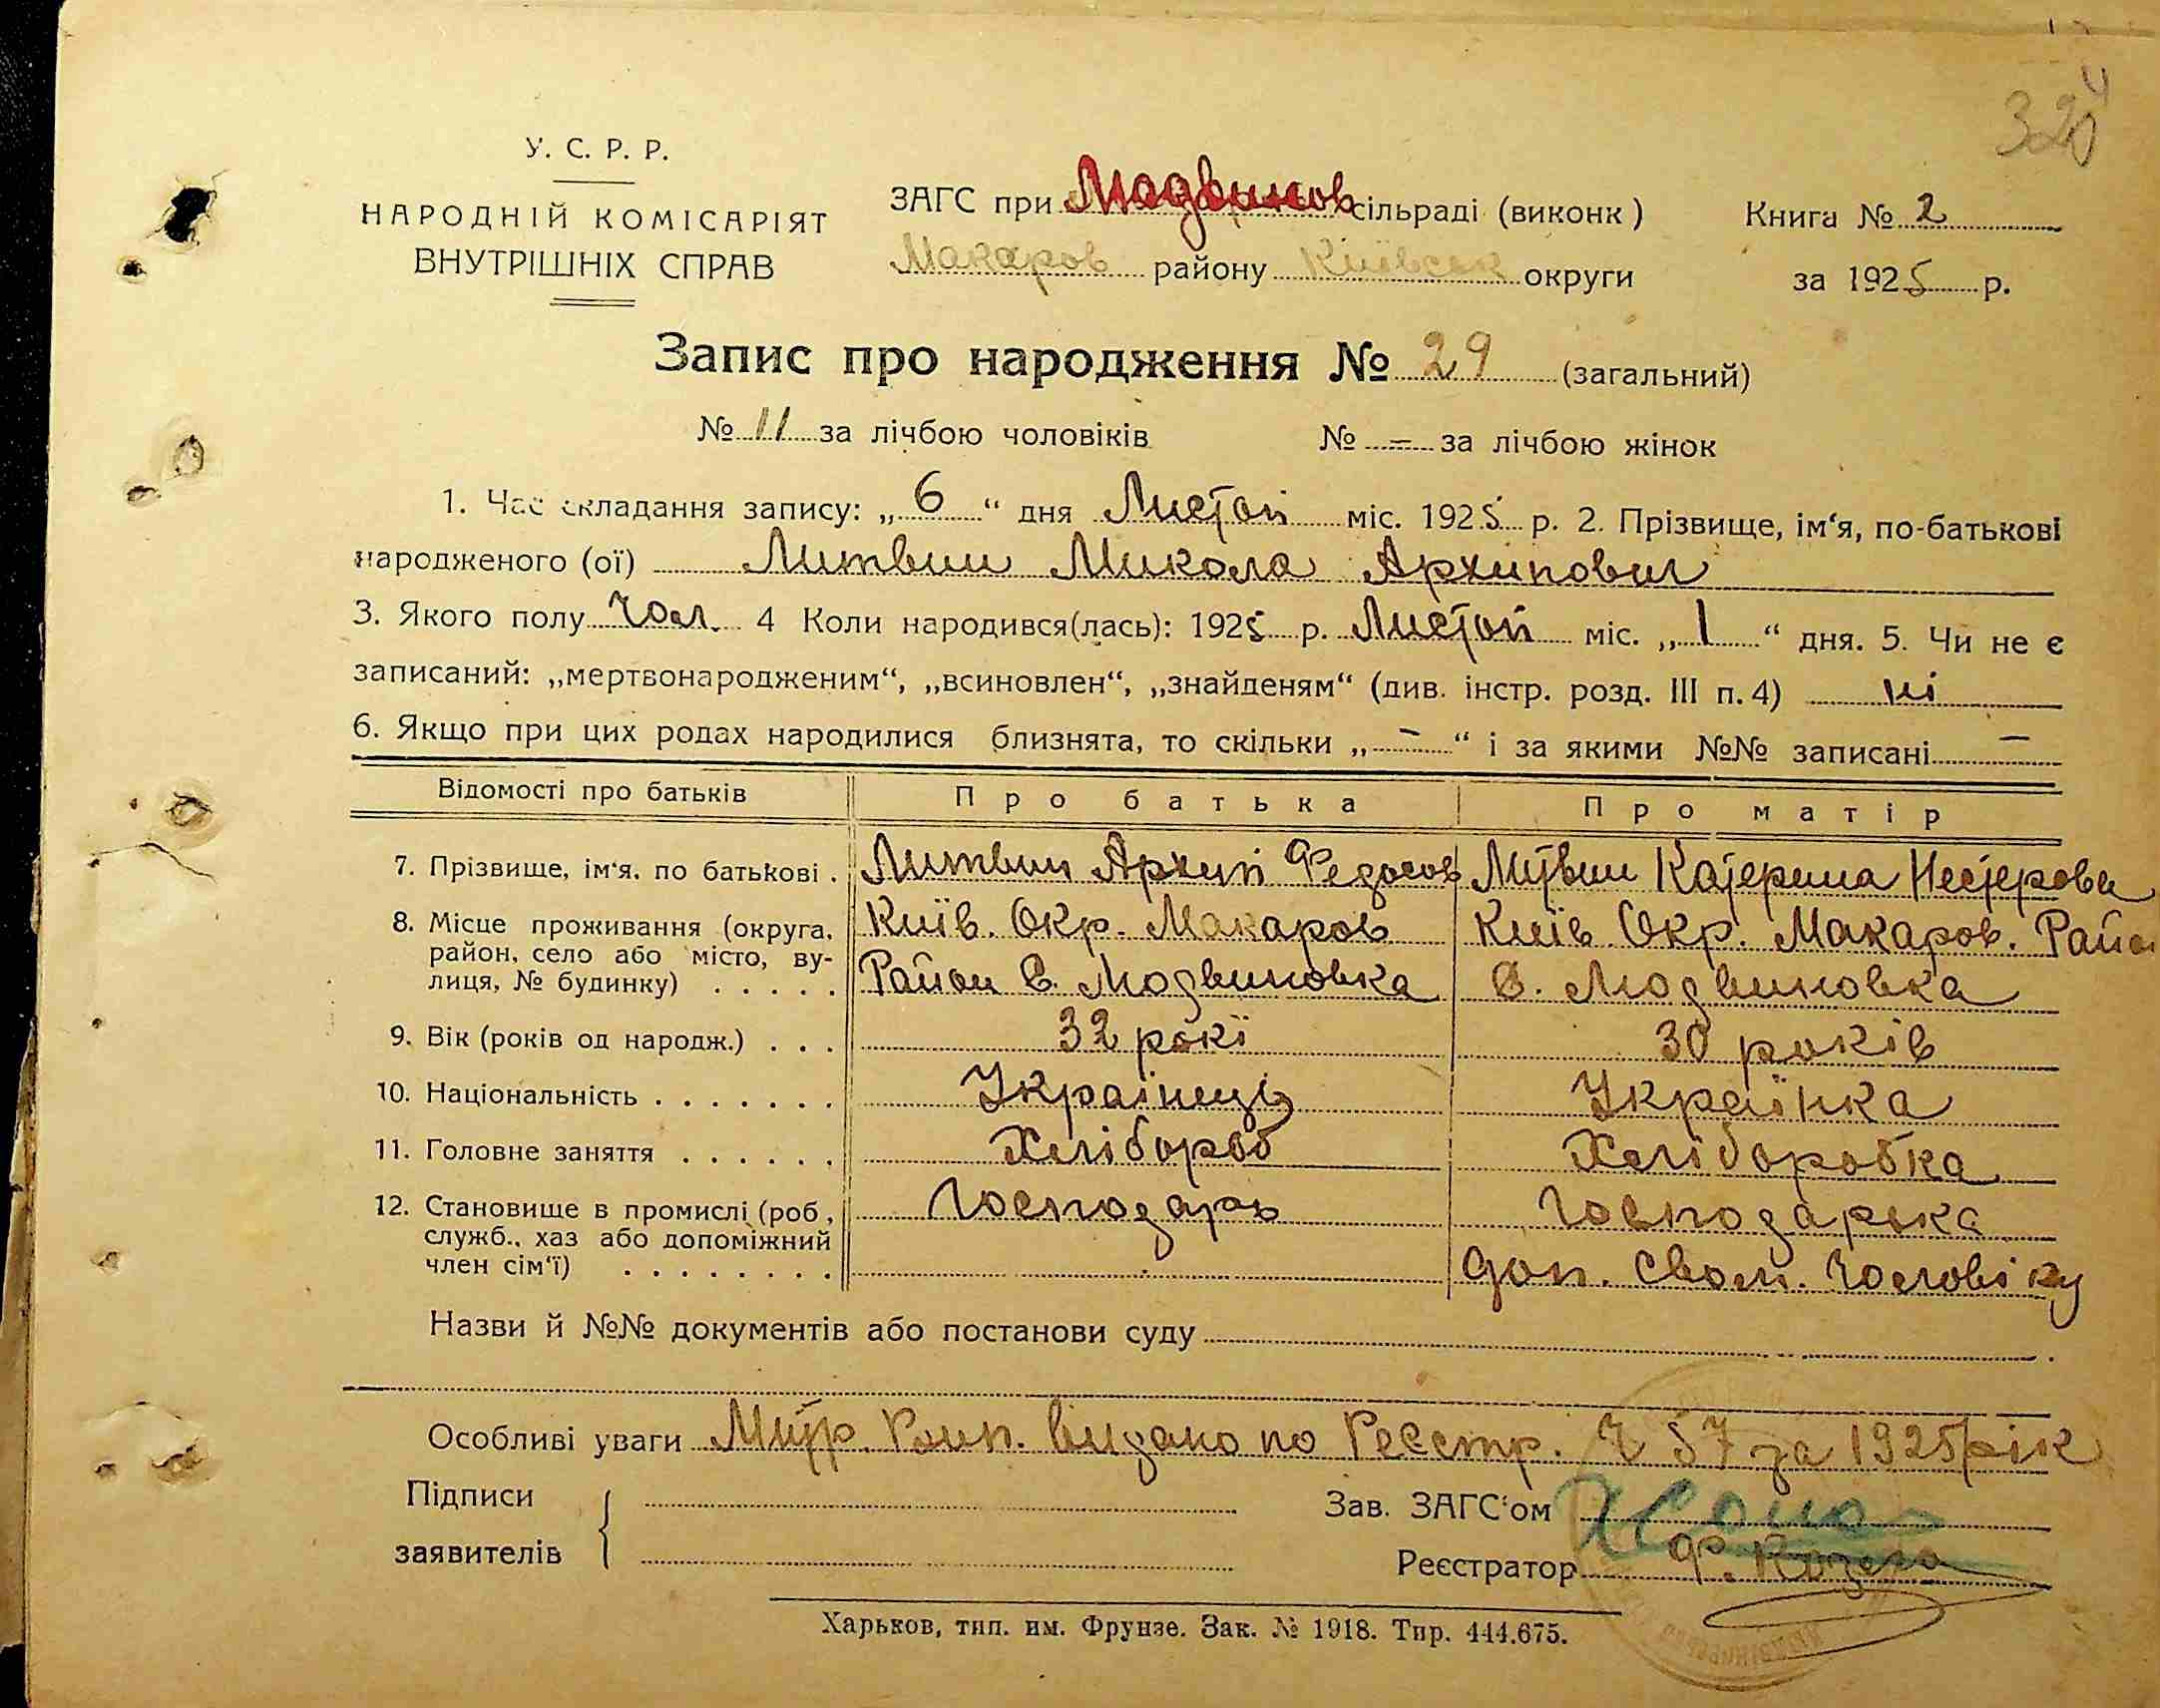 324
У. С. Р. Р.
НАРОДНІЙ КОМІСАРІЯТ
ВНУТРІШНІХ СПРАВ
ЗАГС при Людвинов сільраді (виконк)
Макаров району Київськ округи
Книга № 2
за 1925 р.
Запис про народження № 29 (загальний)
№ 11 за лічбою чоловіків № = за лічбою жінок
1. Час складання запису: „ 6 “ дня Листоп міс. 1925 р. 2. Прізвище, ім‘я, по-батькові
народженого (ої) Литвин Микола Архипович
3. Якого полу Чол. 4 Коли народився(лась): 1925 р. Листоп міс. „ 1 “ дня. 5. Чи не є
записаний: „мертвонародженим“, „всиновлен“, „знайденям“ (див. інстр. розд. III п. 4) ні
6. Якщо при цих родах народилися близнята, то скільки „ – “ і за якими №№ записані –
Відомості про батьків Про батька Про матір
7. Прізвище, ім‘я, по батькові . Литвин Архип Федосов Литвин Катерина Нестерови
8. Місце проживання (округа, Київ. Окр. Макаров Київ Окр. Макаров. Район
район, село або місто, ву- Район С. Людвиновка С. Людвиновка
лиця, № будинку) . . . . .
9. Вік (років од народж.) . . . 32 рокі 30 років
10. Національність . . . . . . . Українець Українка
11. Головне заняття . . . . . . Хлібороб Хліборобка
12. Становище в промислі (роб, Господарь Господарька
служб., хаз або допоміжний
член сім‘ї) . . . . . . . . доп. своєм. Чоловіку
Назви й №№ документів або постанови суду
Особливі уваги видано по Реєстр. Ч 57 за 1925 рік
Підписи
заявителів
Зав. ЗАГС‘ом
Реєстратор
Харьков, тип. им. Фрунзе. Зак. № 1918. Тир. 444.675.